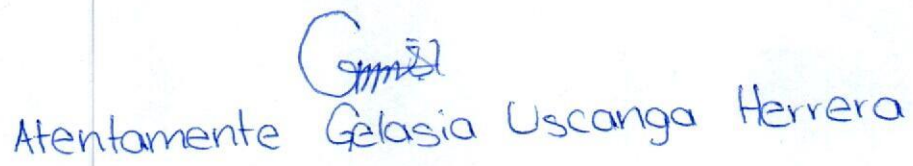 Atentamente Gelasia Uscanga Herrera